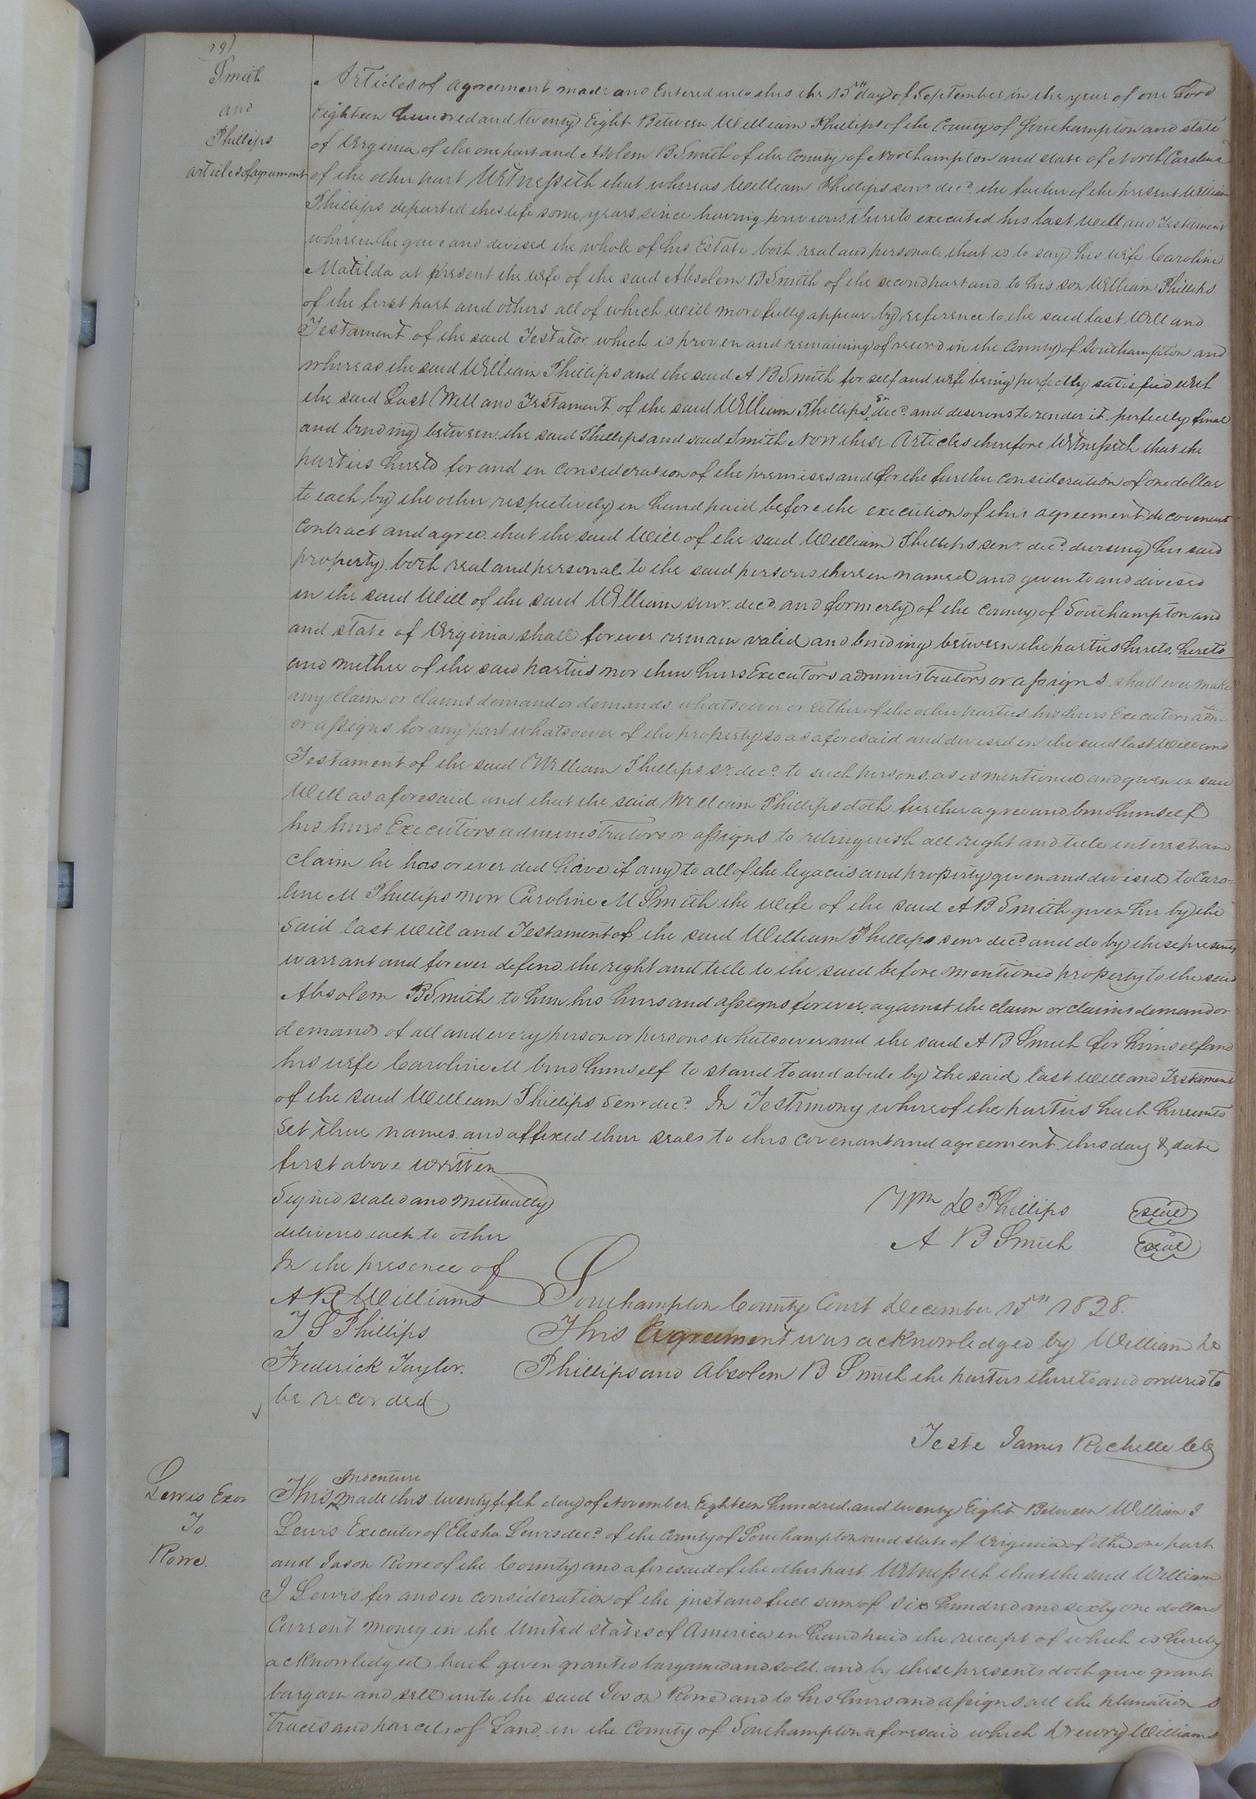 191
Smith
and
Phillips
articles of agreement
Articles of agreement made and Entered into this the 15th day of September in the year of our Lord
Eighteen hundred and twenty Eight Between William Phillips of the County of Southampton and state
of Virginia of the one part and Absolem B Smith of the County of Northampton and state of North Carolina
of the other part Witnesseth that whereas William Phillips senr. decd. the father of the present William
Phillips departed this life some years since having previous thereto executed his last will and Testament
wherein he gave and devised the whole of his Estate both real and personal that is to say his wife Caroline
Matilda at present the wife of the said Absolem B Smith of the second part and to his son William Phillips
of the first part and others all of which will more fully appear by reference to the said last Will and
Testament of the said Testator which is proven and remaining of record in the County of Southampton and
whereas the said William Phillips and the said A B Smith for self and wife being perfectly satisfied with
the said Last Will and Testament of the said William Phillips Sr. decd. and desirous to render it perfectly final
and binding between the said Phillips and said Smith Now these Articles therefore Witnesseth that the
parties hereto for and in consideration of the premises and for the further consideration of one dollar
to each by the other respectively in hand paid before the execution of this agreement, do covenant
contract and agree that the said Will of the said William Phillips senr. decd. divising his said
property both real and personal to the said persons therein named and given to and divised
in the said Will of the said William senr. decd. and formerly of the County of Southampton and
and state of Virginia shall forever remain valid and binding between the parties hereto hereto
and neither of the said parties nor their heirs Executors administrators or assigns shall ever make
any claim or claims demand or demands whatsoever or either of the other parties his heirs Executors adm
or assigns for any part whatsoever of the property so as aforesaid and devised in the said last Will and
Testament of the said William Phillips sr. decd. to such persons as is mentioned and given in said
Will as aforesaid and that the said William Phillips doth further agree and bind himself
his heirs Executors administrators or assigns to relinquish all right and title interest and
claim he has or ever did have if any to all of the legacies and property given and divised to Caro-
line M Phillips now Caroline M Smith the wife of the said A B Smith given her by the
said last will and Testament of the said William Phillips senr decd. and do by these presents
warrant and forever defend the right and title to the said before mentioned property to the said
Absolem B Smith to him his heirs and assigns forever against the claim or claims demand or
demands of all and every person or persons whatsoever and the said A B Smith for himself and
his wife Caroline M bind himself to stand to and abide by the said last will and Testament
of the said William Phillips Senr decd. In Testimony whereof the parties hath hereunto
Set their names and affixed their seals to this covenant and agreement this day & date
first above written
Signed sealed and mutually
delivered each to other
In the presence of
A R Williams
T S Phillips
Frederick Taylor.
Wm D Phillips seal
A B Smith seal
Southampton County Court December 15th 1828.
This Agreement was acknowledged by William D
Phillips and Absolem B Smith the parties thereto and ordered to
be recorded
Teste James Rochelle CC
Lewis Exor
To
Rowe.
This Indenture made this twenty fifth day of November Eighteen hundred and twenty Eight Between William J
Lewis Executor of Elisha Lewis decd. of the County of Southampton and state of Virginia of the one part
and Jason Rowe of the County and aforesaid of the other part Witnesseth that the said William
J Lewis for and in consideration of the just and full sum of six hundred and sixty one dollars
Current money in the United states of America in hand paid the receipt of which is hereby
acknowledged hath given granted bargained and sold and by these presents doth give grant
bargain and sell unto the said Jason Rowe and to his heirs and assigns all the plantation s
Tracts and parcels of Land in the County of Southampton aforesaid which Drewry Williams